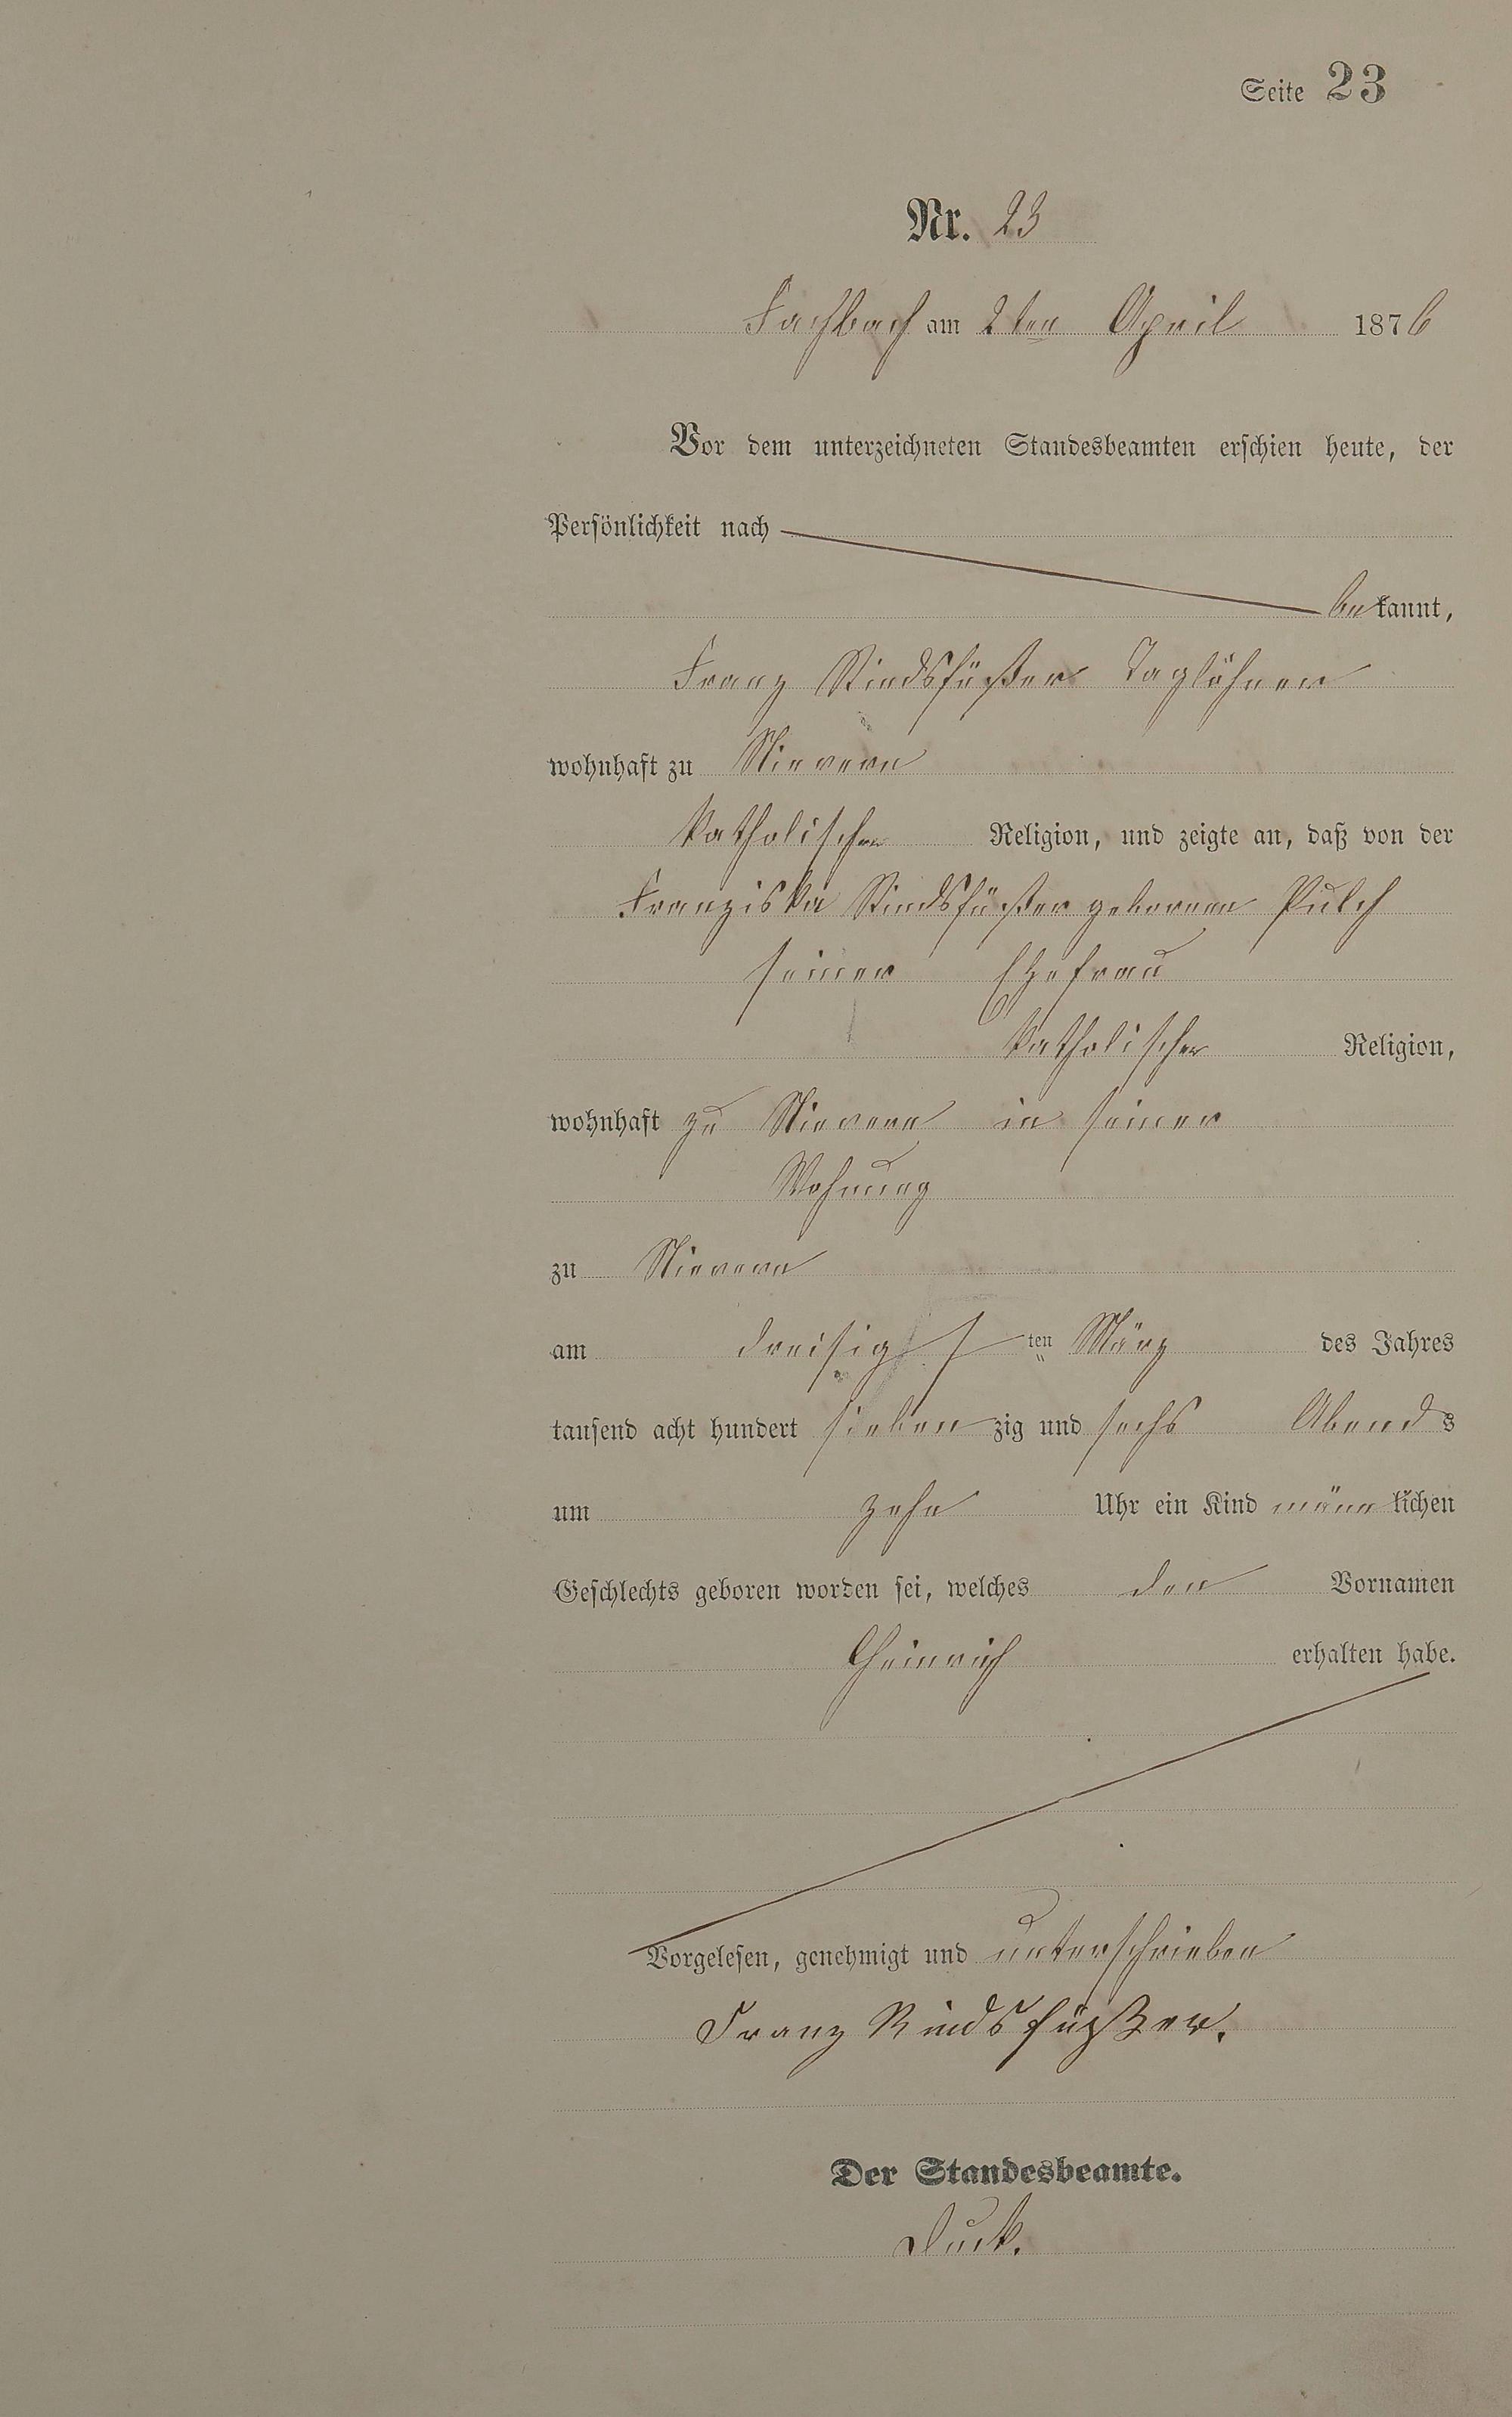 Seite 23
Nr. 23
Fachbach am 2ten April 1876
Vor dem unterzeichneten Standesbeamten erschien heute, der
Persönlichkeit nach
bekannt,
Franz Rindsfüßer Taglöhner
wohnhaft zu Nievern
katholischer Religion, und zeigte an, daß von der
Franziska Rindsfüßer geborene Pulch
seiner Ehefrau
katholischer Religion,
wohnhaft zu Nievern in seiner
Wohnung
zu Nievern
am dreisigsten März des Jahres
tausend acht hundert siebenzig und sechs Abends
um zehn Uhr ein Kind männlichen
Geschlechts geboren worden sei, welches den Vornamen
Heinrich erhalten habe.
Vorgelesen, genehmigt und unterschrieben
Franz Rindsfüßer.
Der Standesbeamte.
Duck.